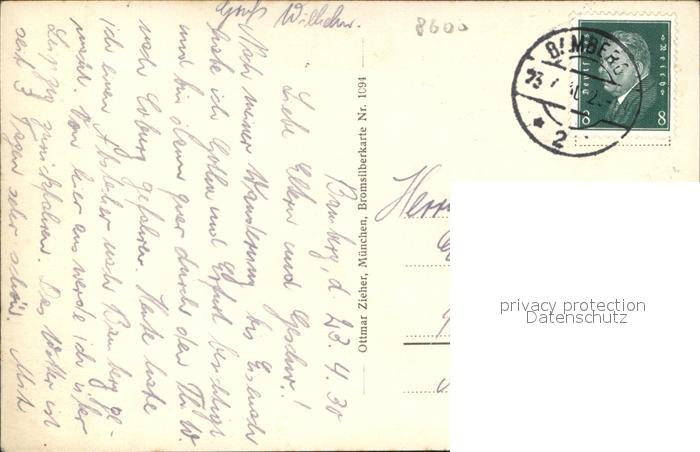 Bamberg, d. 23.4.30
Liebe Eltern und Geschw.!
Nach meiner Wanderung bis Eisenach
habe ich Gotha und Erfurt besichtigt
und bin dann quer durch den Th. W.
nach Coburg gefahren. Heute habe
ich einen Abstecher nach Bamberg ge-
macht. Von hier aus werde ich über
Leipzig zurückfahren. Das Wetter ist
seit 3 Tagen sehr schön. Mit
Gruß Wilhelm.
8600
Ottmar Zieher, München, Bromsilberkarte Nr. 1094
BAMBERG
* 2
8 8
Herrn
privacy protection
Datenschutz